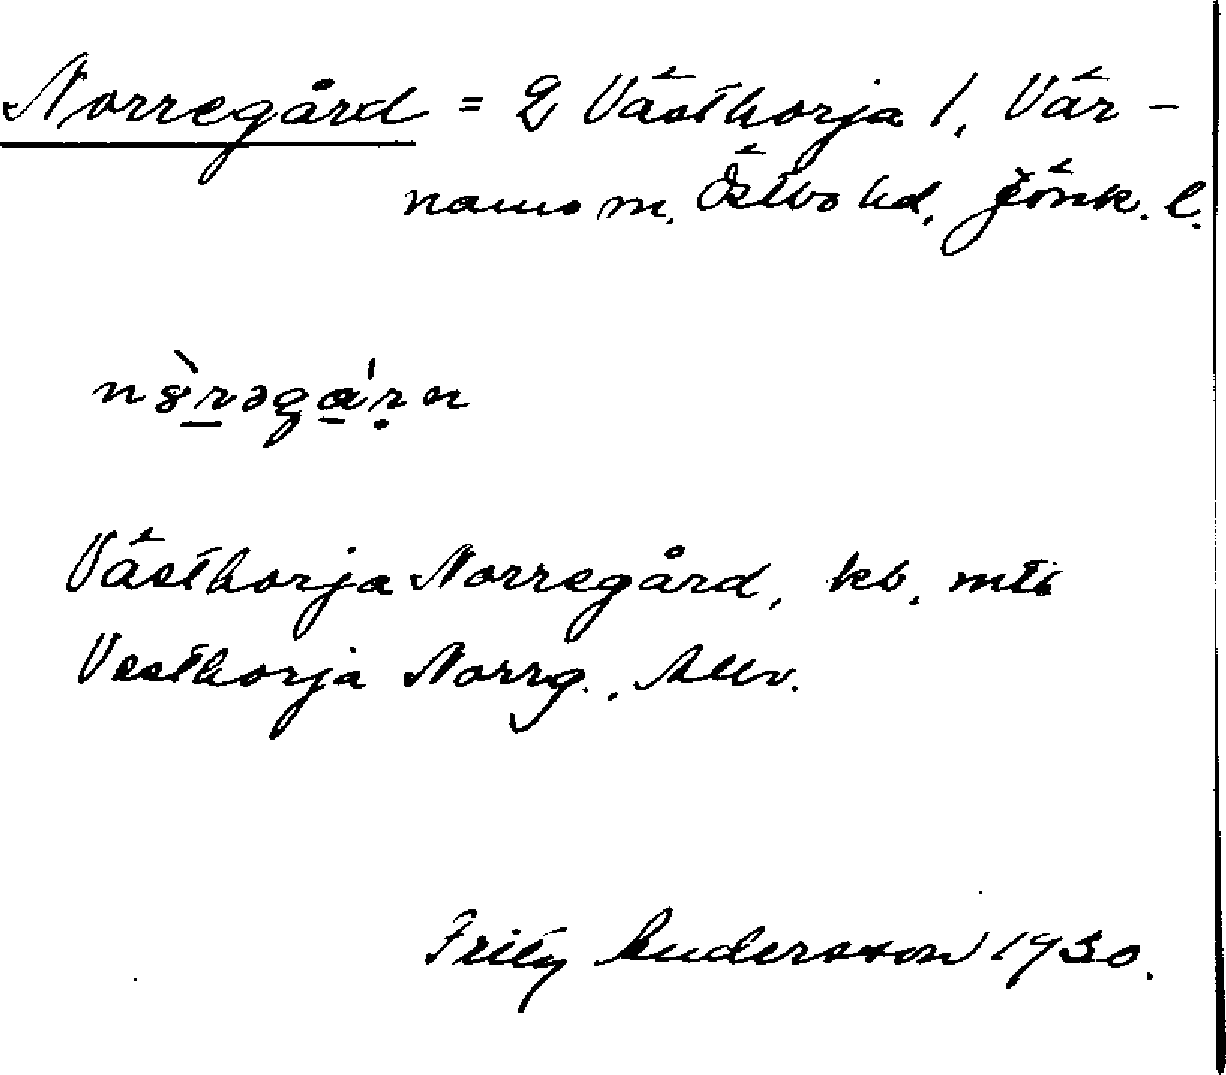 Norregård = 2 Västhorja 1, Vär-
namo m. Östbo hd, Jönk. l.
Västhorja Norregård, kb,
Vesthorja Norrg.,
Fritz Andersson 1930.